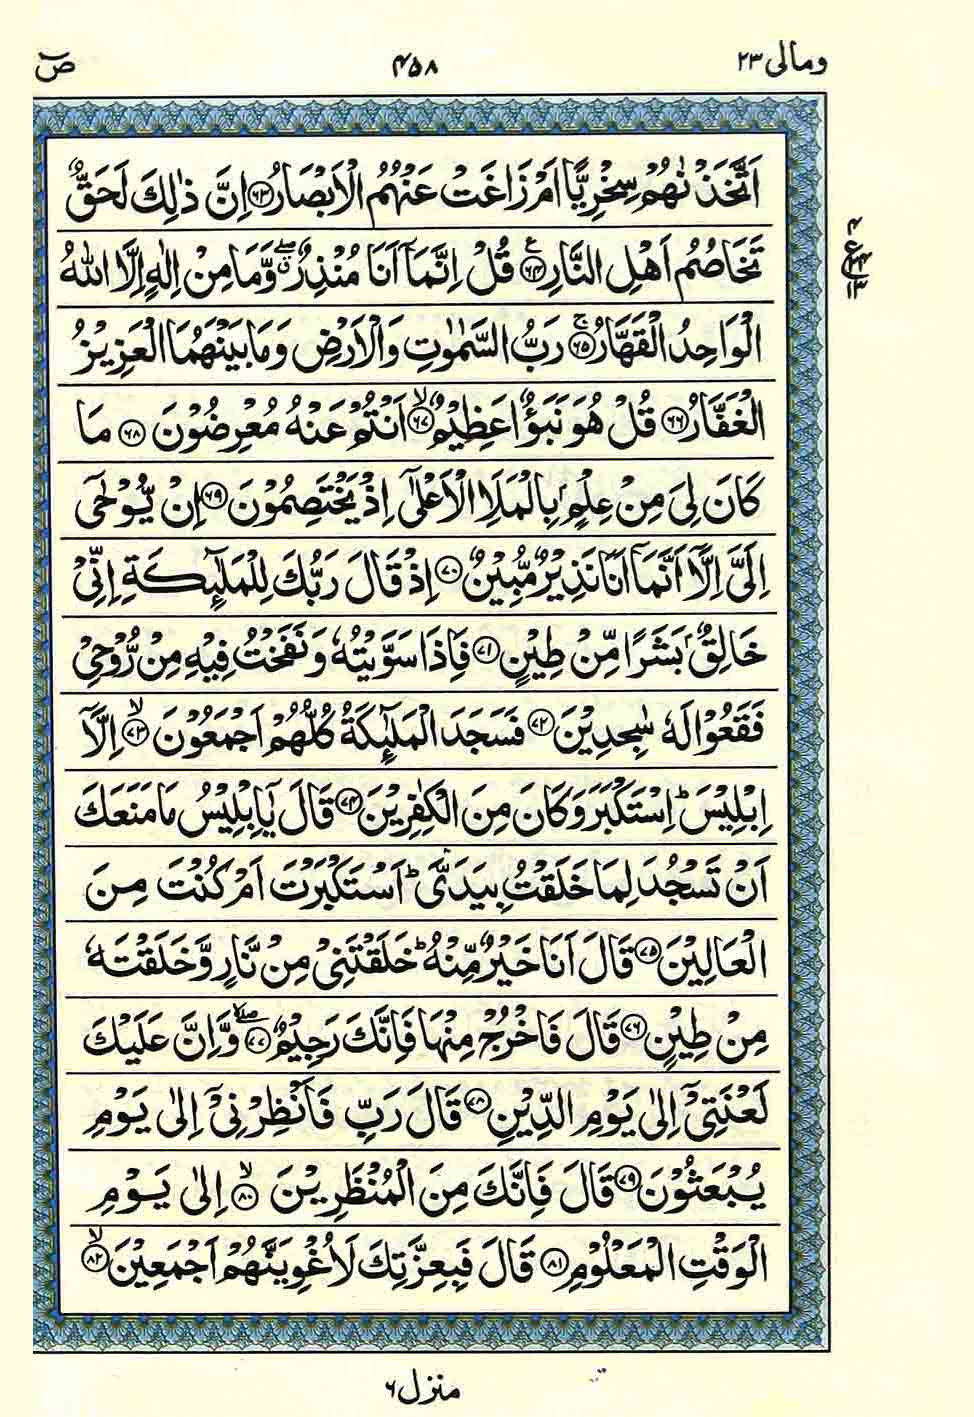 ومالی ۲۳ ۴۵۸ صٓ
اَتَّخَذْنٰهُمْ سِخْرِيًّا اَمْ زَاغَتْ عَنْهُمُ الْاَبْصَارُ ۶۳ اِنَّ ذٰلِكَ لَحَقٌّ
تَخَاصُمُ اَهْلِ النَّارِ ۶۴ ع قُلْ اِنَّمَاۤ اَنَا مُنْذِرٌ ۖۗ وَّمَا مِنْ اِلٰهٍ اِلَّا اللّٰهُ
الْوَاحِدُ الْقَهَّارُ ۶۵ ۚ رَبُّ السَّمٰوٰتِ وَالْاَرْضِ وَمَا بَيْنَهُمَا الْعَزِيْزُ
الْغَفَّارُ ۶۶ قُلْ هُوَ نَبَؤٌا عَظِيْمٌ ۶۷ ۙ اَنْتُمْ عَنْهُ مُعْرِضُوْنَ ۶۸ مَا
كَانَ لِيَ مِنْ عِلْمٍۭ بِالْمَلَاِ الْاَعْلٰۤى اِذْ يَخْتَصِمُوْنَ ۶۹ اِنْ يُّوْحٰۤى
اِلَيَّ اِلَّاۤ اَنَّمَاۤ اَنَا نَذِيْرٌ مُّبِيْنٌ ۷۰ اِذْ قَالَ رَبُّكَ لِلْمَلٰٓئِكَةِ اِنِّيْ
خَالِقٌۢ بَشَرًا مِّنْ طِيْنٍ ۷۱ فَاِذَا سَوَّيْتُهٗ وَنَفَخْتُ فِيْهِ مِنْ رُّوْحِيْ
فَقَعُوْا لَهٗ سٰجِدِيْنَ ۷۲ فَسَجَدَ الْمَلٰٓئِكَةُ كُلُّهُمْ اَجْمَعُوْنَ ۷۳ ۙ اِلَّاۤ
اِبْلِيْسَ ؕ اِسْتَكْبَرَ وَكَانَ مِنَ الْكٰفِرِيْنَ ۷۴ قَالَ يٰۤاِبْلِيْسُ مَا مَنَعَكَ
اَنْ تَسْجُدَ لِمَا خَلَقْتُ بِيَدَيَّ ؕ اَسْتَكْبَرْتَ اَمْ كُنْتَ مِنَ
الْعَالِيْنَ ۷۵ قَالَ اَنَا خَيْرٌ مِّنْهُ ؕ خَلَقْتَنِيْ مِنْ نَّارٍ وَّخَلَقْتَهٗ
مِنْ طِيْنٍ ۷۶ قَالَ فَاخْرُجْ مِنْهَا فَاِنَّكَ رَجِيْمٌ ۷۷ ۙۖ وَّاِنَّ عَلَيْكَ
لَعْنَتِيْۤ اِلٰى يَوْمِ الدِّيْنِ ۷۸ قَالَ رَبِّ فَاَنْظِرْنِيْۤ اِلٰى يَوْمِ
يُبْعَثُوْنَ ۷۹ قَالَ فَاِنَّكَ مِنَ الْمُنْظَرِيْنَ ۸۰ ۙ اِلٰى يَوْمِ
الْوَقْتِ الْمَعْلُوْمِ ۸۱ قَالَ فَبِعِزَّتِكَ لَاُغْوِيَنَّهُمْ اَجْمَعِيْنَ ۸۲ ۙ
منزل ۶